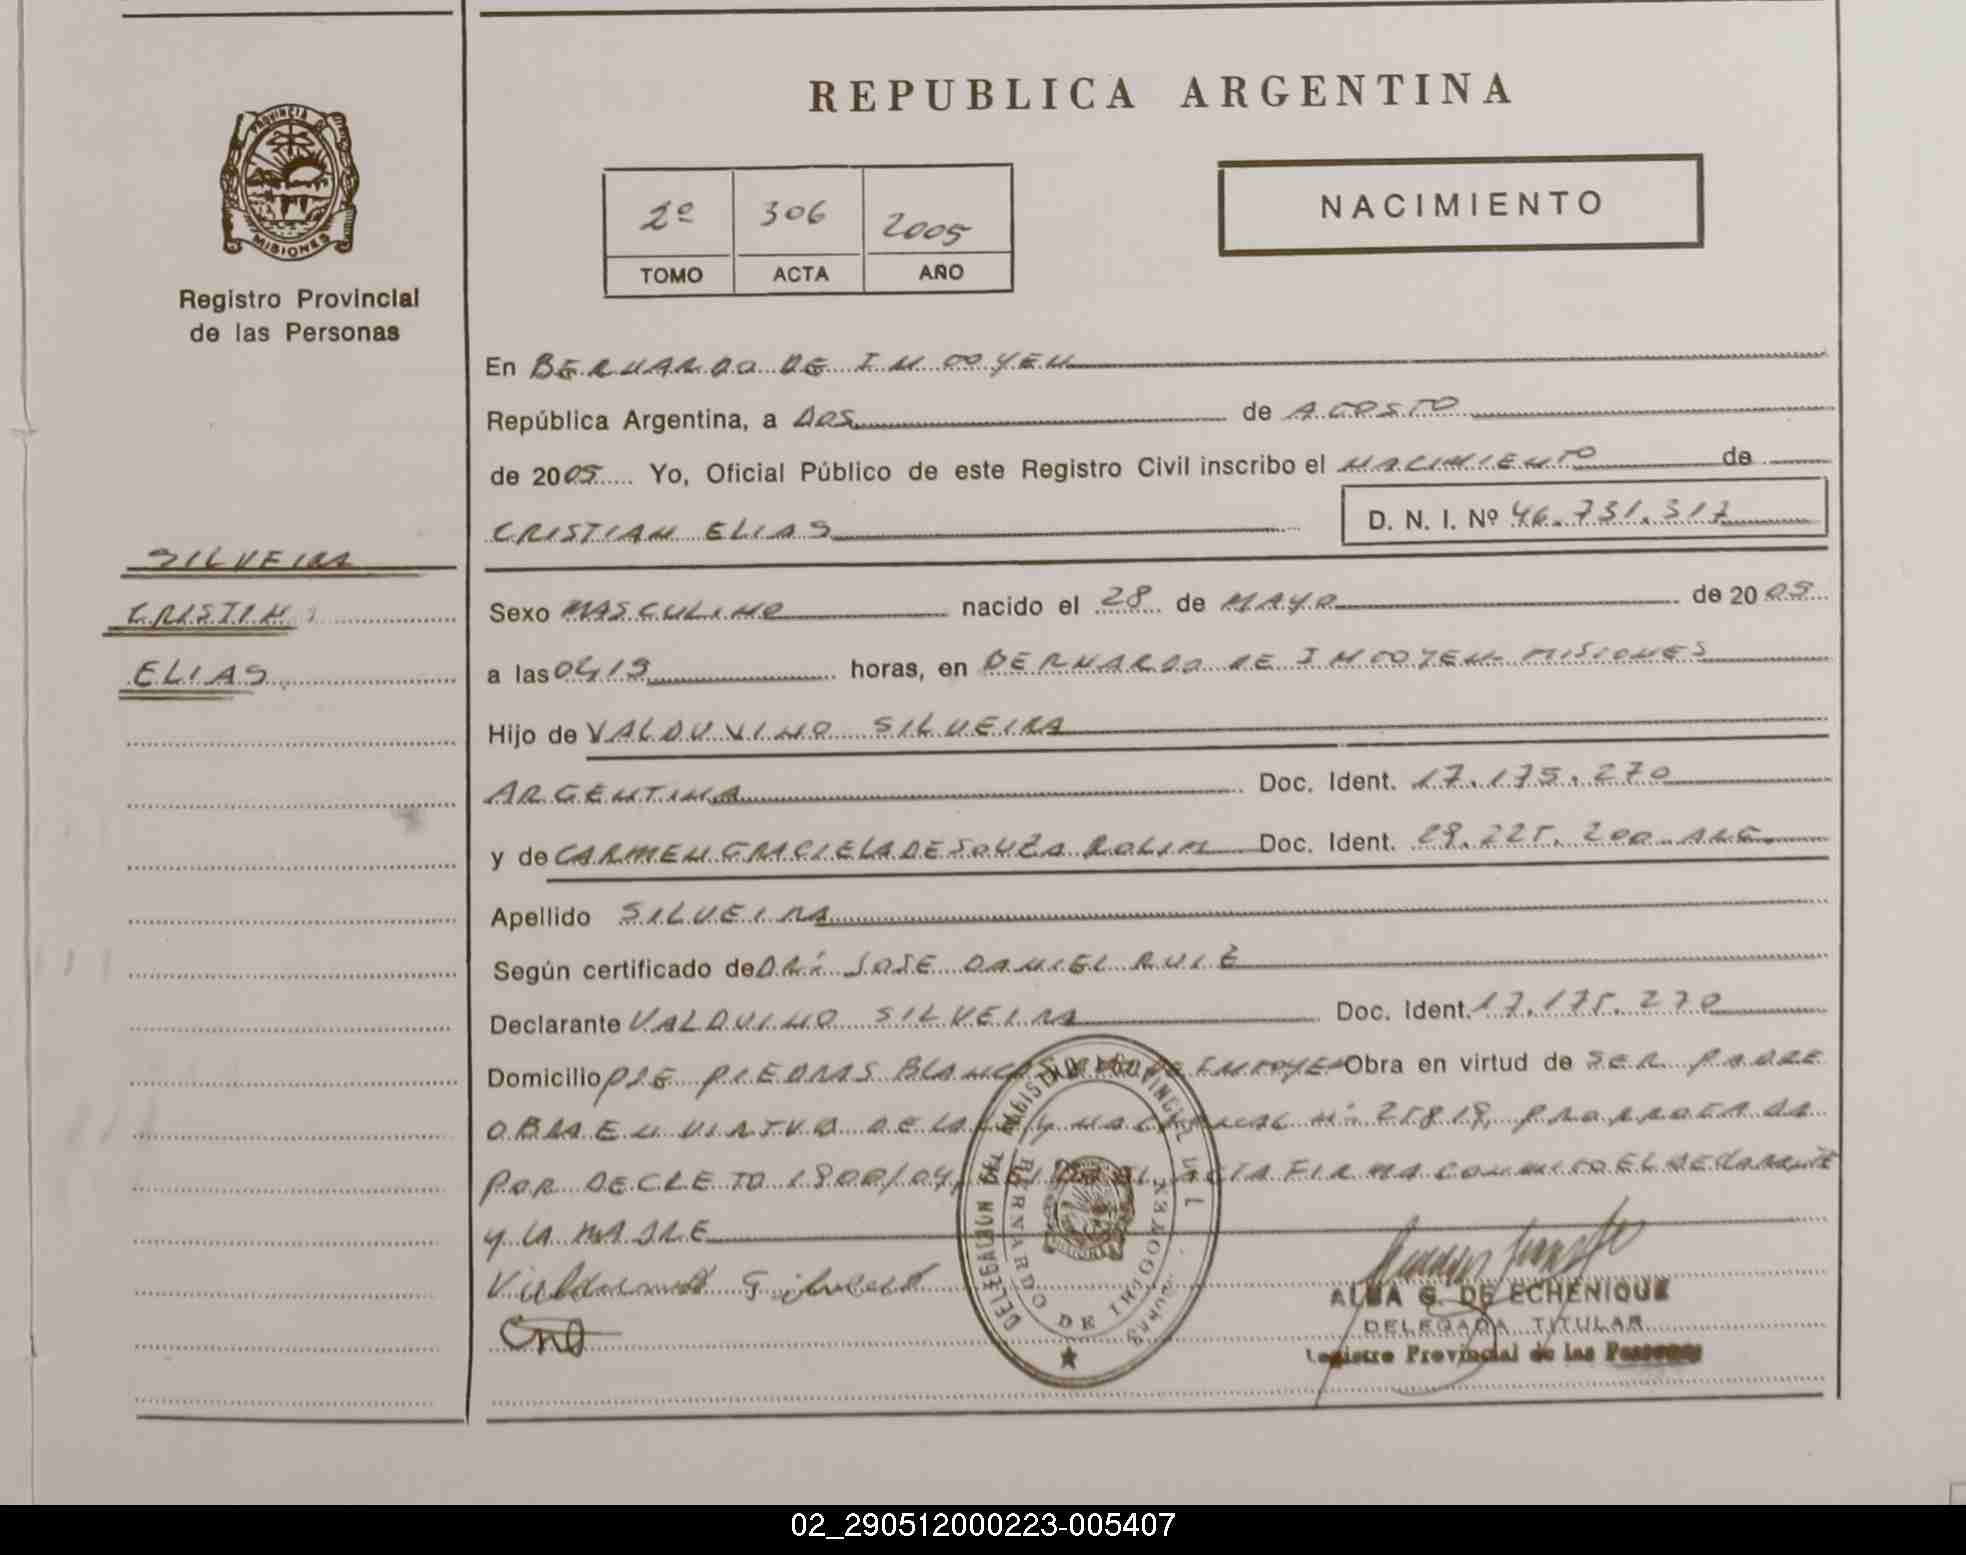 REPUBLICA ARGENTINA
PROVINCIA DE
MISIONES
Registro Provincial
de las Personas
2º 306 2005
TOMO ACTA AÑO
NACIMIENTO
En BERNARDO DE IRIGOYEN
República Argentina, a DOS de AGOSTO
de 2005 Yo, Oficial Público de este Registro Civil inscribo el NACIMIENTO de
CRISTIAN ELIAS D. N. I. Nº 46.731.317
SILVEIRA
CRISTIAN
ELIAS
Sexo MASCULINO nacido el 28 de MAYO de 2005
a las 0415 horas, en BERNARDO DE IRIGOYEN - MISIONES
Hijo de VALDUVINO SILVEIRA
ARGENTINA Doc. Ident. 17.175.270
y de CARMEN GRACIELA DE SOUZA ROLIM Doc. Ident. 29.225.200 - ARG.
Apellido SILVEIRA
Según certificado de JOSE DANIEL
Declarante VALDUINO SILVEIRA Doc. Ident. 17.175.270
Domicilio PJE PIEDRAS Obra en virtud de SER PADRE
OBRA EN VIRTUD DE LA LEY NACIONAL Nº 25819, PRORROGADA
POR DECRETO 1800/04, ACTA FIRMA CONMIGO EL DECLARANTE
Y LA MADRE
DELEGACION DEL REGISTRO PROVINCIAL DE L
BERNARDO DE IRIGOYEN
ALBA G. DE ECHENIQUE
DELEGADA TITULAR
Registro Provincial de las Personas
02_290512000223-005407